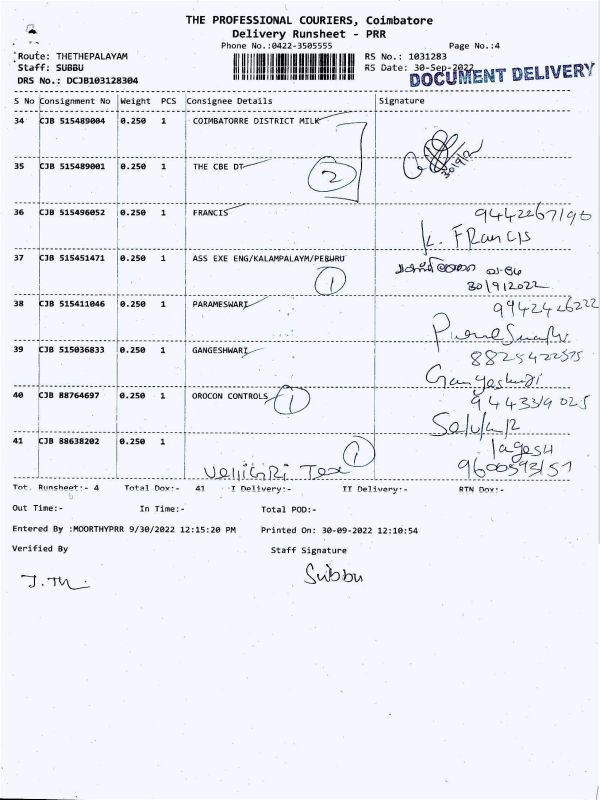 THE PROFESSIONAL COURIERS, Coimbatore
Delivery Runsheet - PRR
Phone No.:0422-3505555 Page No.:4
Route: THETHEPALAYAM RS No.: 1031283
Staff: SUBBU RS Date: 30-Sep-2022
DRS No.: DCJB103128304 DOCUMENT DELIVERY
S No Consignment No Weight PCS Consignee Details Signature
34 CJB 515489004 0.250 1 COIMBATORRE DISTRICT MILK
30/9/2
35 CJB 515489001 0.250 1 THE CBE DT 2
36 CJB 515496052 0.250 1 FRANCIS 9442267196
K. FRANCIS
37 CJB 515451471 0.250 1 ASS EXE ENG/KALAMPALAYM/PERURU
1 30/9/2022
38 CJB 515411046 0.250 1 PARAMESWARI 9942426222
39 CJB 515036833 0.250 1 GANGESHWARI 8825422575
40 CJB 88764697 0.250 1 OROCON CONTROLS 1
41 CJB 88638202 0.250 1 1
Tot. Runsheet:- 4 Total Dox:- 41 I Delivery:- II Delivery:- RTN Dox:-
Out Time:- In Time:- Total POD:-
Entered By :MOORTHYPRR 9/30/2022 12:15:20 PM Printed On: 30-09-2022 12:10:54
Verified By Staff Signature
Subbu